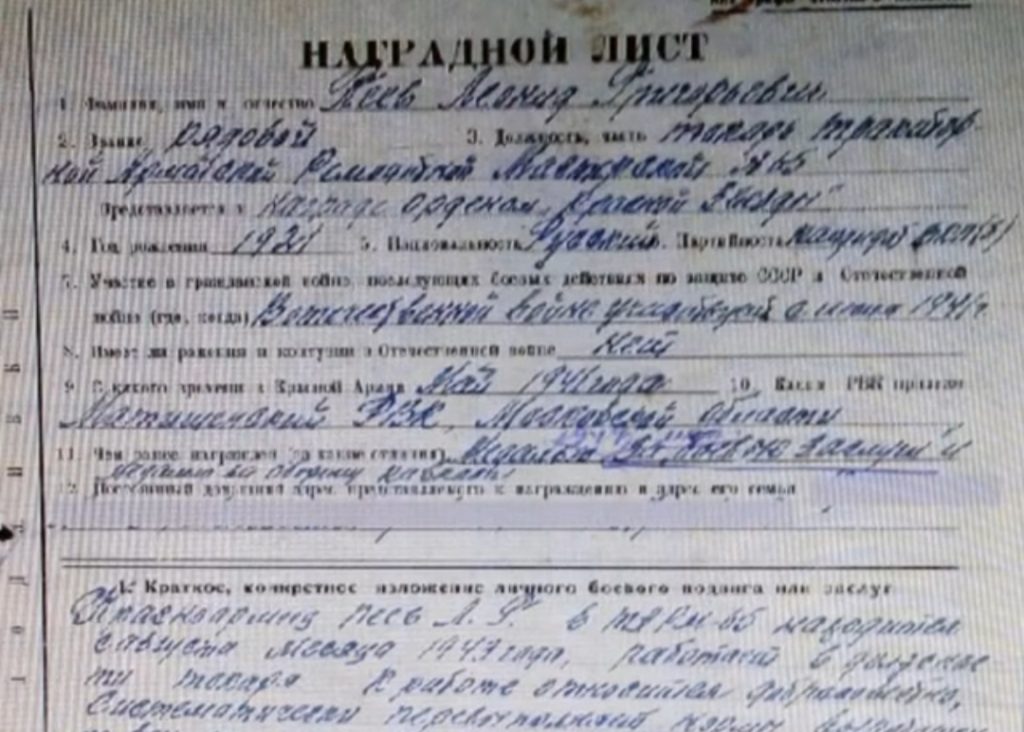 НАГРАДНОЙ ЛИСТ
1. Фамилия, имя и отчество Леонид Григорьевич
2. Звание рядовой 3. Должность, часть токарь
ной Армейской Ремонтной Мастерской № 65
Представляется к награде орденом „Красной Звезды"
4. Год рождения 1921 5. Национальность Русский 6. Партийность кандидат ВКП(б)
7. Участие в гражданской войне, последующих боевых действиях по защите СССР и Отечественной
войне (где, когда) В отечественной войне участвует с июня 1941 г
8. Имеет ли ранения и контузии в Отечественной войне нет
9. С какого времени в Красной Армии Май 1941 года 10. Каким РВК призван
РВК, Московской области
11. Чем ранее награжден (за какие отличия) Медалью "За боевые заслуги" и
медалью за оборону кавказа
12. Постоянный домашний адрес представляемого к награждению и адрес его семьи
1. Краткое, конкретное изложение личного боевого подвига или заслуг
Красноармеец Л. Г. в находится
с августа месяца 1943 года, работает в должнос
ти токаря. К работе относится добросовестно,
Систематически перевыполняет нормы